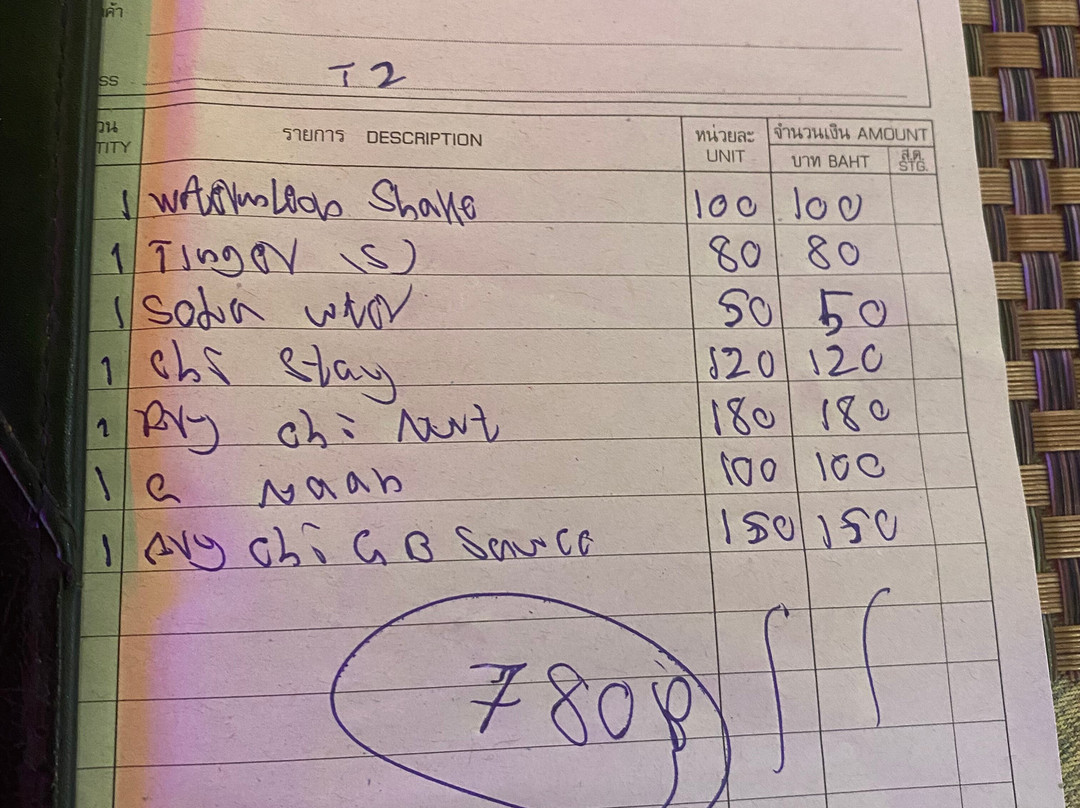 ค้า
SS T2
วน รายการ DESCRIPTION หน่วยละ จำนวนเงิน AMOUNT
TITY UNIT บาท BAHT ส.ต. STG.
1 Shake 100 100
1 (S) 80 80
1 Soda 50 50
1 chi Stay 120 120
1 chi 180 180
1 G Naan 100 100
1 chi G B 150 150
780฿